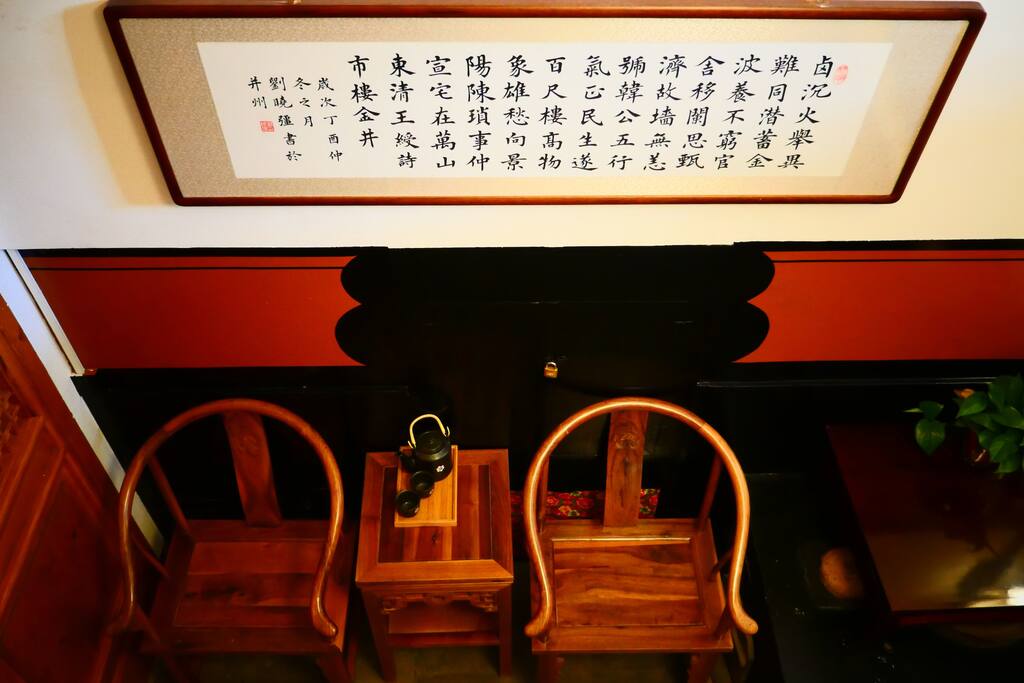 卤沉火舉異
難同潛蓄金
波養不窮官
舍移關思甄
濟故墻無恙
號韓公五行
氣正民生遂
百尺樓高物
象雄愁向景
陽陳瑣事仲
宣宅在萬山
東清王綬詩
市樓金井
歲次丁酉仲
冬之月
劉曉彊書於
并州